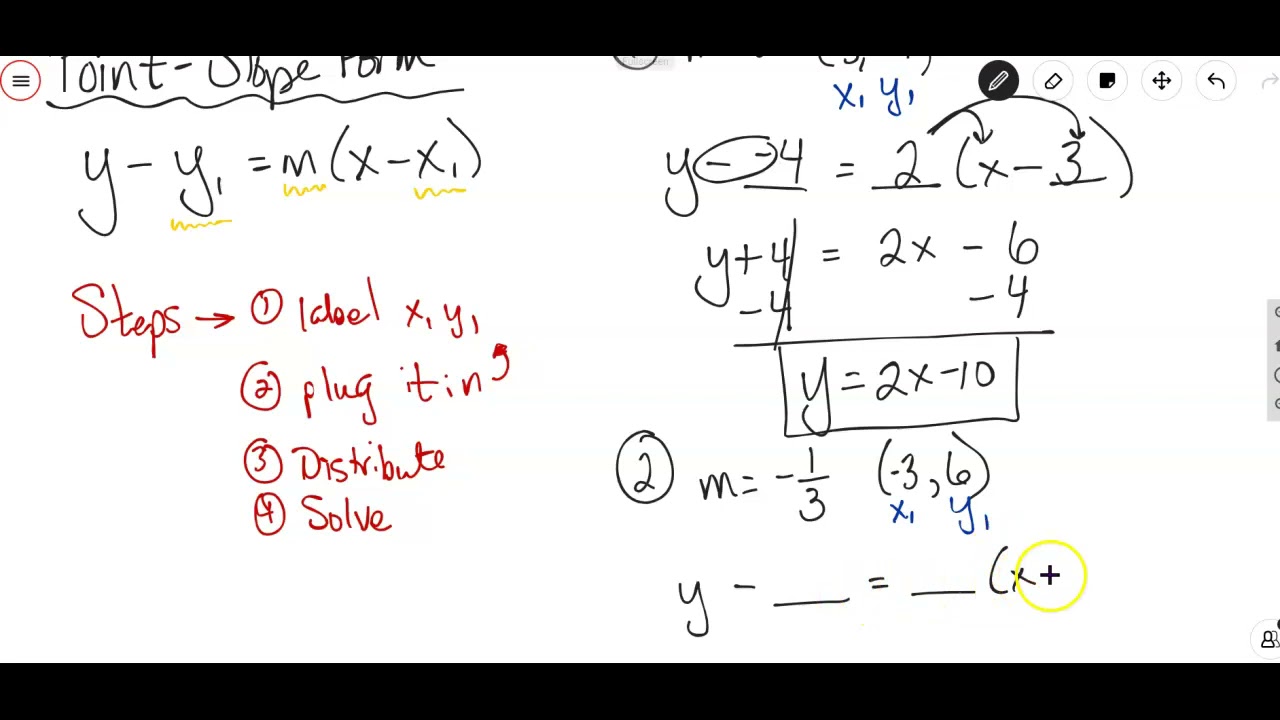 Point-Slope Form
y - y₁ = m(x - x₁)
Steps → ① label x₁ y₁
② plug it in
③ Distribute
④ Solve
Fullscreen
x₁ y₁
y - -4 = 2 (x - 3)
y + 4 = 2x - 6
-4 - 4
y = 2x - 10
② m = -1/3 (-3, 6)
x₁ y₁
y - ___ = ___ (x